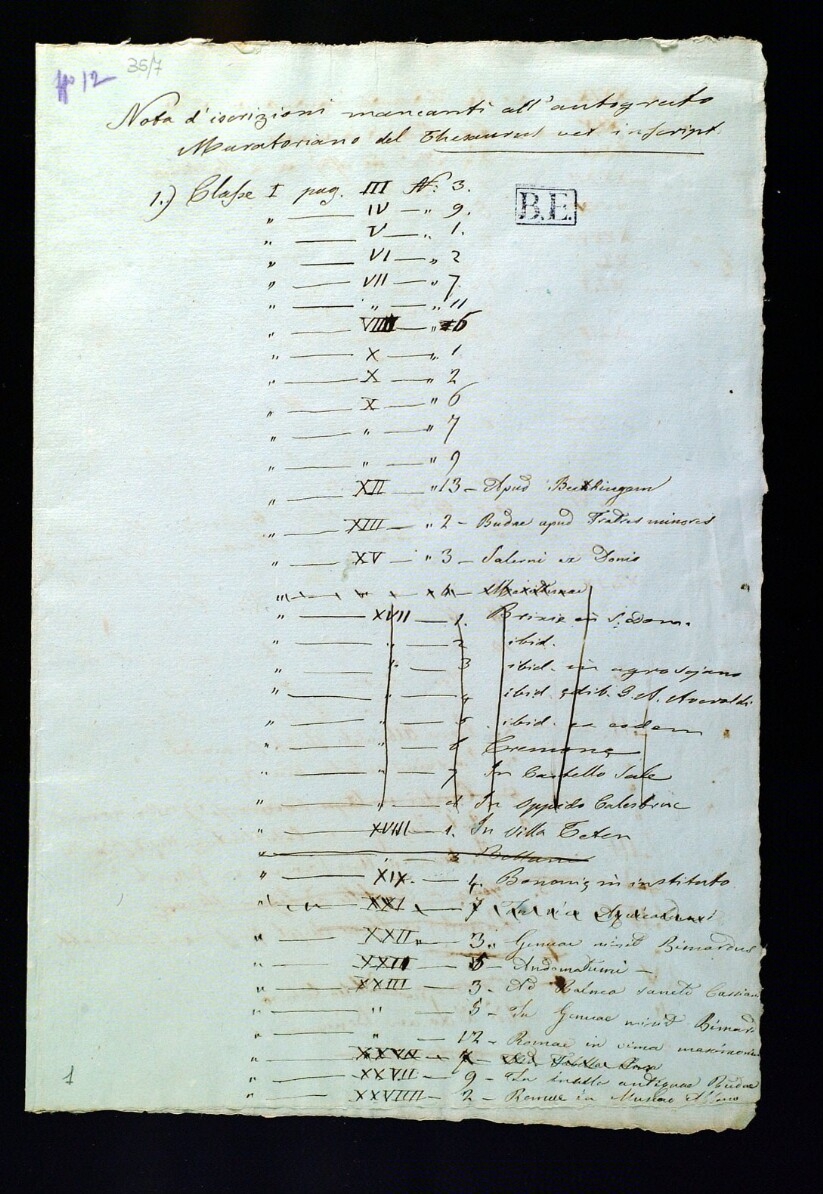 No 12 35/7
Nota d'iscrizioni mancanti all'autografo
Muratoriano del Thesaurus vet inscript.
1.) Classe I pag. III N: 3.
B.E.
" — IV — " 9.
" — V — " 1.
" — VI — " 2
" — VII — " 7
" — " — " 11
" — VIII — " 6
" — X — " 1
" — X — " 2
" — X — " 6
" — " — " 7
" — " — " 9
" — XII — " 13 — Apud
" — XIII — " 2 — Budae apud Fratres minores
" — XV — " 3 — Salerni ex Donio
" — " — 4
" — XVII — 1. Brixie in S. Dom.
" — " — 2 ibid.
" — " — 3 ibid. in agro sojano
" — " — 4 ibid. edib. Averoldi
" — " — 5 ibid. ex eodem
" — " — 6 Cremonę
" — " — 7 In Castello Sale
" — " — In Oppido
" — XVIII — 1. In Villa Teter
" — " — 3
" — XIX — 4. Bononię in instituto
" — XXI — 7
" — XXII " — 3 " Genuae misit Bimardus
" — XXII — 5 —
" — XXIII — 3 — Ad Balnea sancti Cassiani
" — " — 5 — In Genuae misit Bimard
" — " — 12 — Romae in
" — XXVII —
" — XXVII — 9 — In antiquae Budae
" — XXVIIII — 2 — Romae in Museo
1